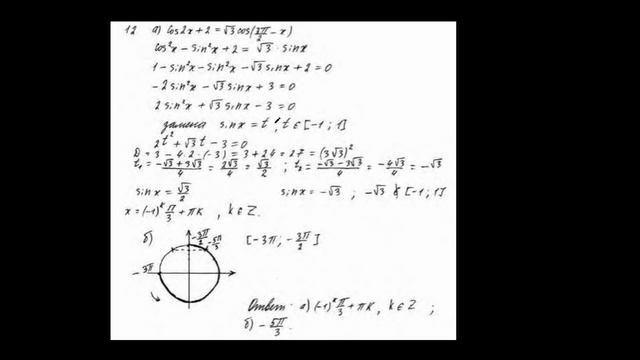 12 а) cos2x + 2 = √3 cos(3π/2 − x)
cos²x − sin²x + 2 = √3 · sinx
1 − sin²x − sin²x − √3 sinx + 2 = 0
−2sin²x − √3 sinx + 3 = 0
2sin²x + √3 sinx − 3 = 0
замена sinx = t, t ∈ [−1; 1]
2t² + √3t − 3 = 0
D = 3 − 4·2·(−3) = 3 + 24 = 27 = (3√3)²
t₁ = (−√3 + 3√3)/4 = 2√3/4 = √3/2 ; t₂ = (−√3 − 3√3)/4 = −4√3/4 = −√3
sinx = √3/2 sinx = −√3 ; −√3 ∉ [−1; 1]
x = (−1)ᵏ π/3 + πk, k ∈ Z.
б) −3π/2 −5π/3 [−3π; −3π/2]
−3π
Ответ: а) (−1)ᵏ π/3 + πk, k ∈ Z ;
б) −5π/3.